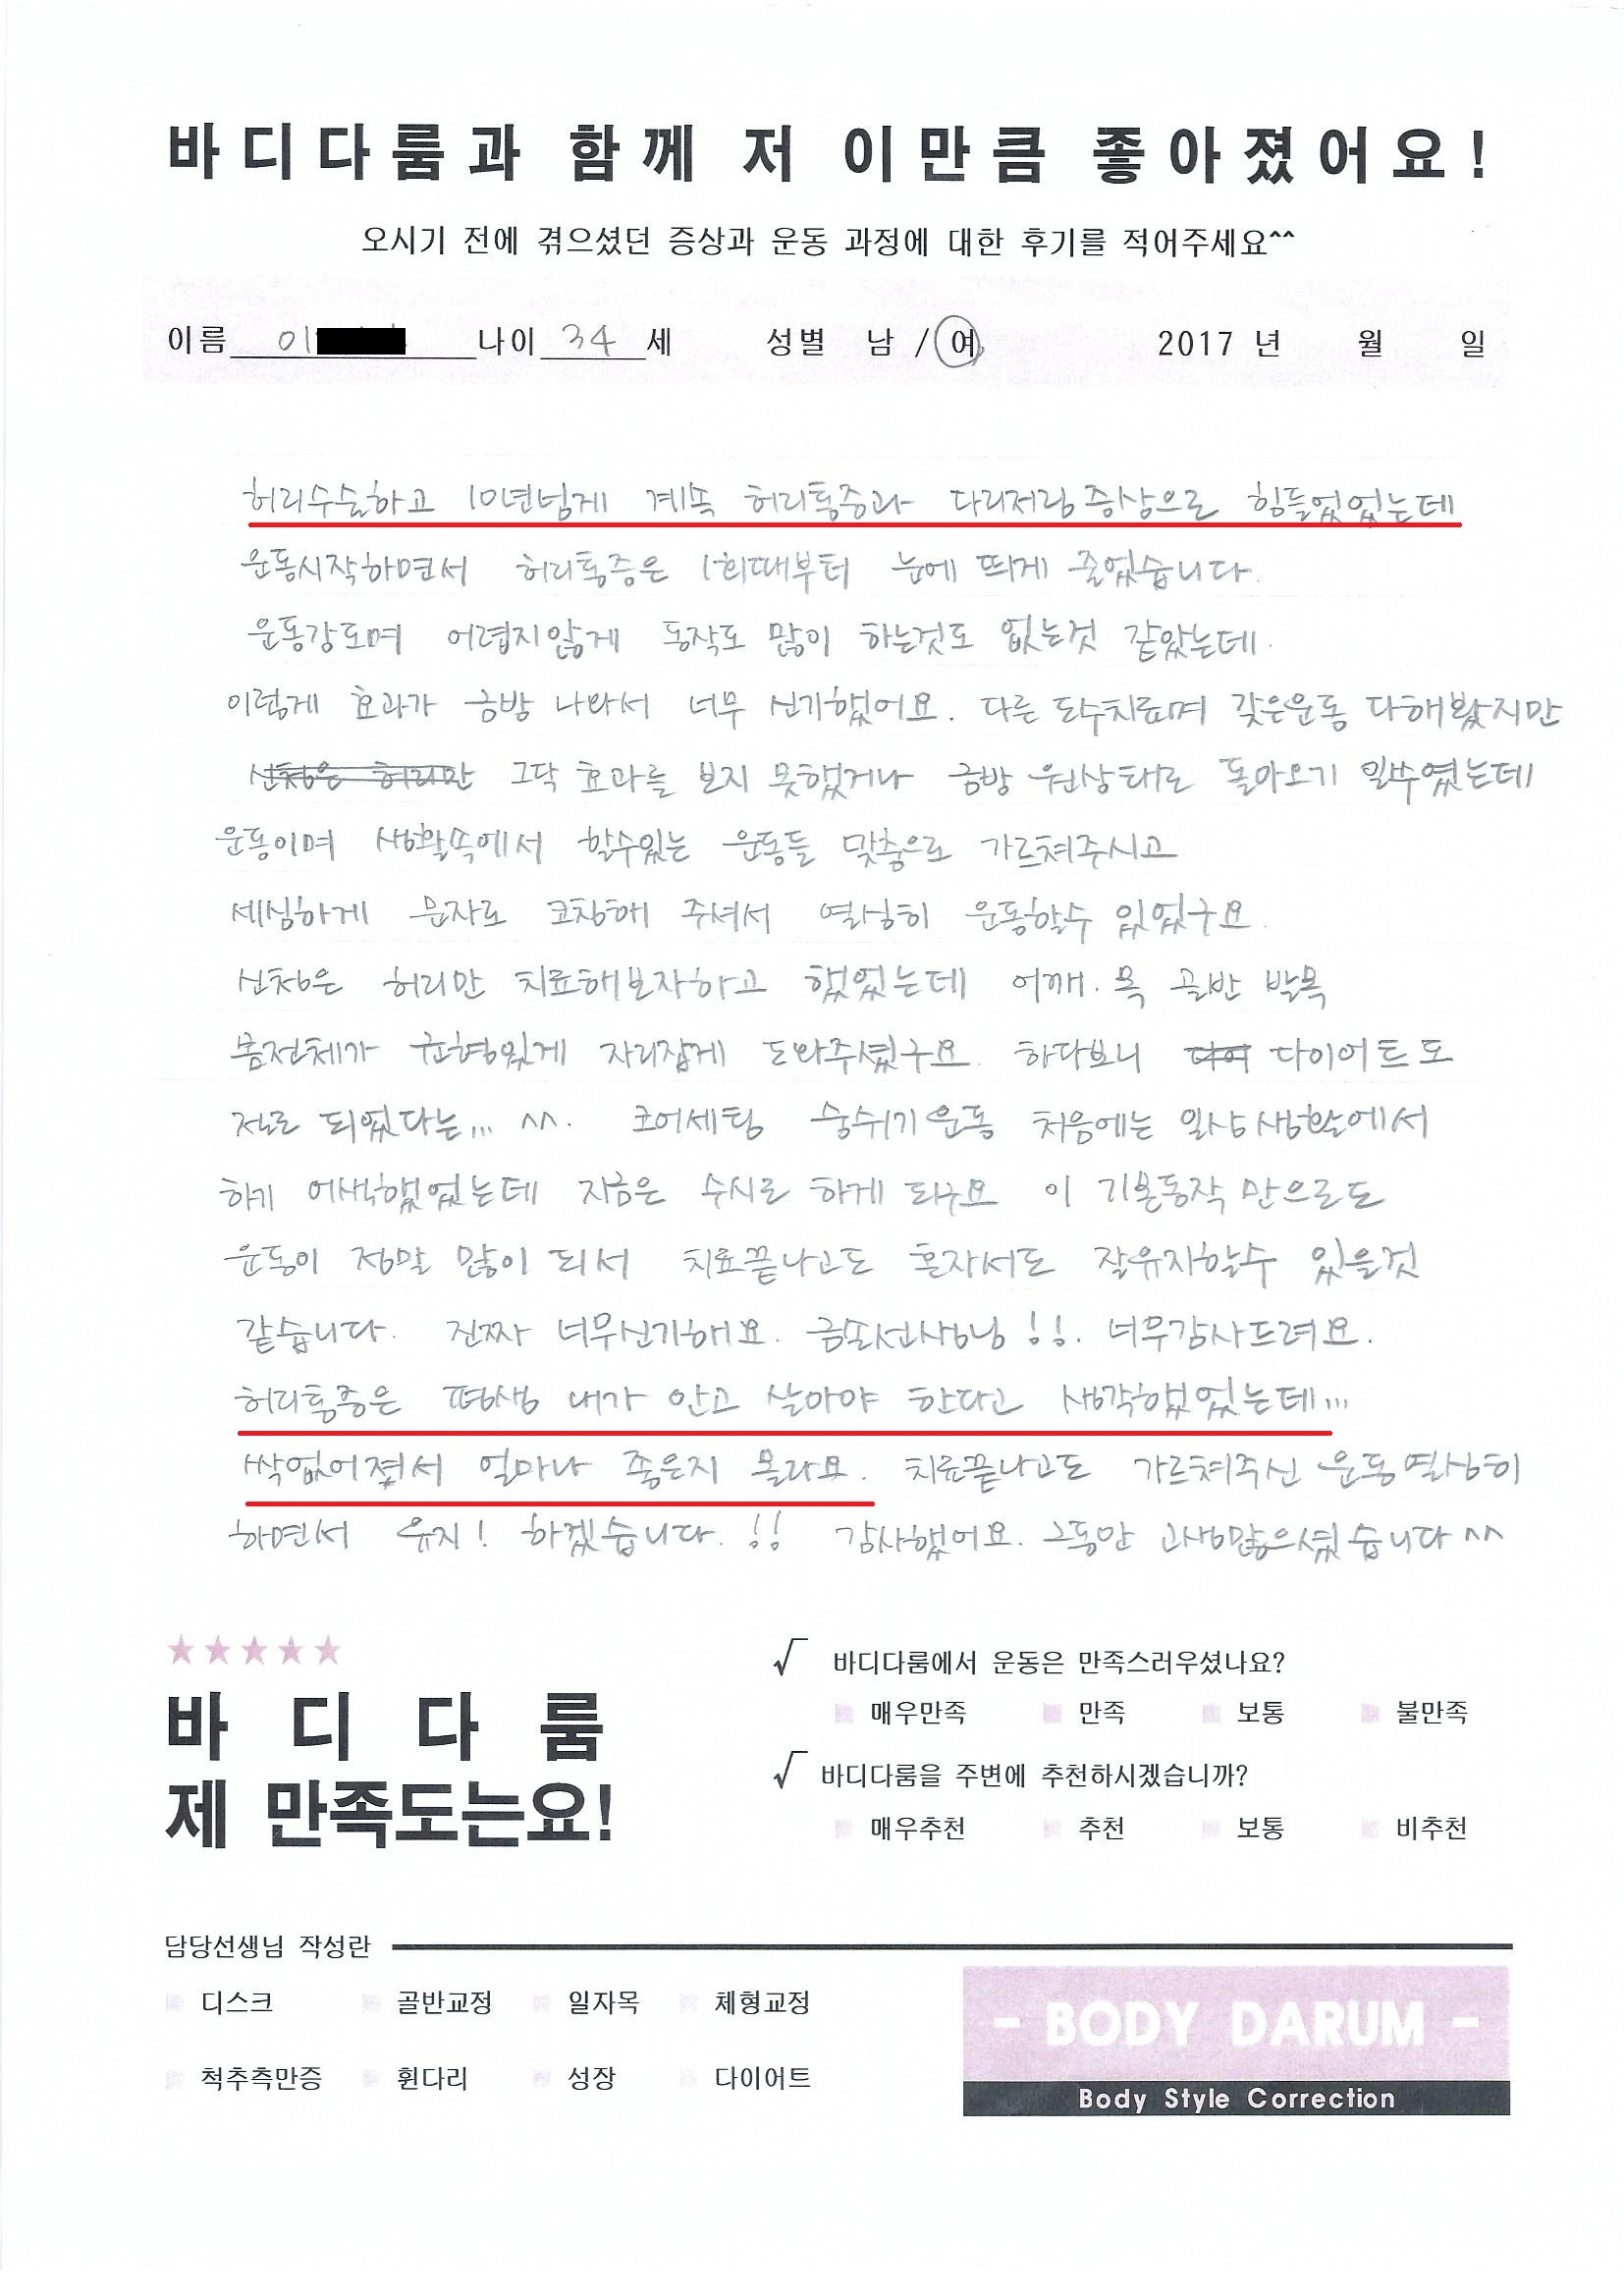 바디다룸과 함께 저 이만큼 좋아졌어요!
오시기 전에 겪으셨던 증상과 운동 과정에 대한 후기를 적어주세요^^
이름 이 나이 34 세 성별 남 / 여 2017 년 월 일
허리수술하고 10년넘게 계속 허리통증과 다리저림증상으로 힘들었었는데
운동시작하면서 허리통증은 1회때부터 눈에 띄게 줄었습니다.
운동강도며 어렵지않게 동작도 많이 하는것도 없는것 같았는데.
이렇게 효과가 금방 나와서 너무 신기했어요. 다른 도수치료며 갖은운동 다해봤지만
신청은 허리만 그닥 효과를 보지 못했거나 금방 원상태로 돌아오기 일수였는데
운동이며 생활속에서 할수있는 운동들 맞춤으로 가르쳐주시고
세심하게 문자로 코칭해 주셔서 열심히 운동할수 있었구요.
신청은 허리만 치료해보자하고 했었는데 어깨. 목 골반 발목
몸전체가 균형있게 자리잡게 도와주셨구요. 하다보니 다이어트도
절로 되었다는... ^^. 코어세팅 숨쉬기운동 처음에는 일상생활에서
하기 어색했었는데 지금은 수시로 하게 되구요 이 기본동작 만으로도
운동이 정말 많이 되서 치료끝나고도 혼자서도 잘유지할수 있을것
같습니다. 진짜 너무신기해요. 금손선생님!!. 너무감사드려요.
허리통증은 평생 내가 안고 살아야 한다고 생각했었는데...
싹없어져서 얼마나 좋은지 몰라요. 치료끝나고도 가르쳐주신 운동열심히
하면서 유지! 하겠습니다.!! 감사했어요. 그동안 고생많으셨습니다^^
★★★★★
바디다룸
제 만족도는요!
√ 바디다룸에서 운동은 만족스러우셨나요?
매우만족 만족 보통 불만족
√ 바디다룸을 주변에 추천하시겠습니까?
매우추천 추천 보통 비추천
담당선생님 작성란
디스크 골반교정 일자목 체형교정
척추측만증 휜다리 성장 다이어트
- BODY DARUM -
Body Style Correction